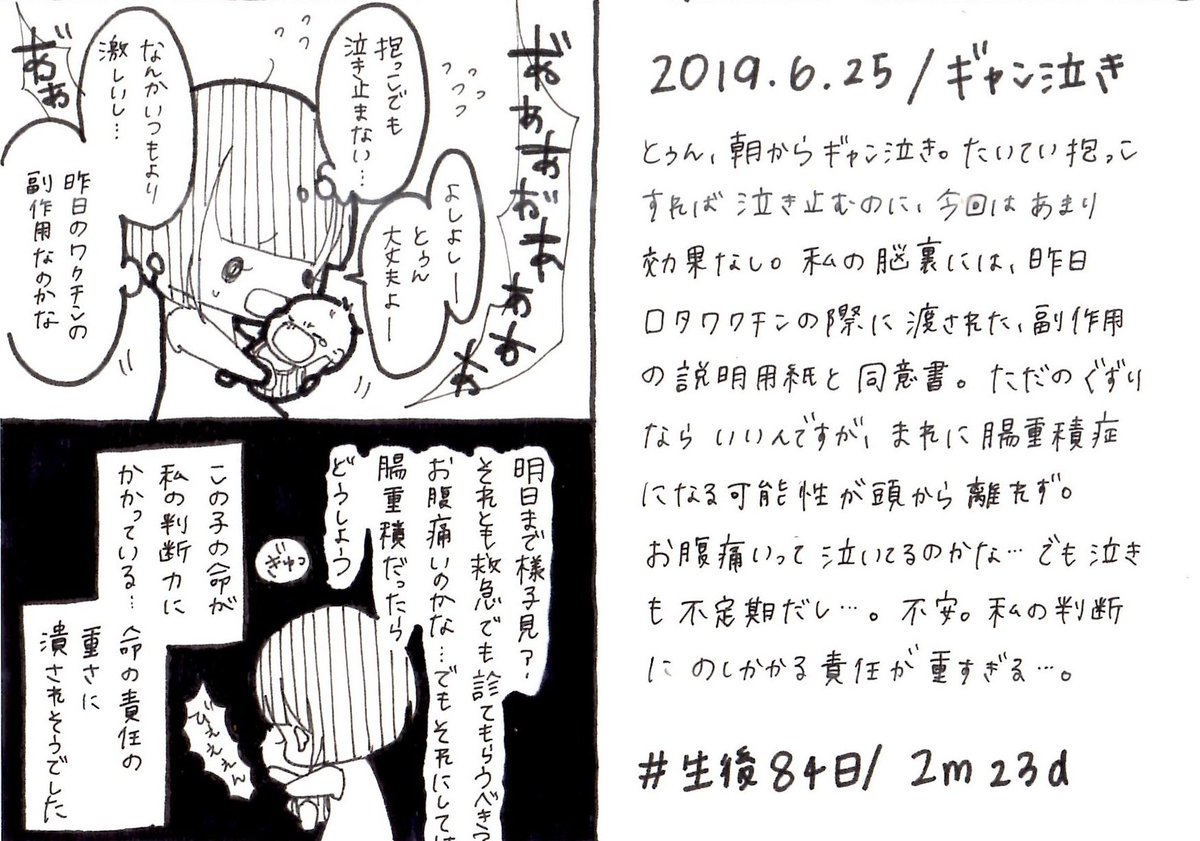 だぁ
ああ
だぁ
ああ
ああ
ぁ
抱っこでも
泣き止まない…
よしよしー
とぅん
大丈夫よー
なんかいつもより
激しいし…
だぁぁ
昨日のワクチンの
副作用なのかな
明日まで様子見?
それとも救急でも診てもらうべき?
お腹痛いのかな…でもそれにしては
腸重積だったら
どうしよう
ぎゅっ
びぇぇぇん
この子の命が
私の判断力に
かかっている…
命の責任の
重さに
潰されそうでした
2019.6.25/ギャン泣き
とぅん、朝からギャン泣き。たいてい抱っこ
すれば泣き止むのに、今回はあまり
効果なし。私の脳裏には、昨日
ロタワクチンの際に渡された、副作用
の説明用紙と同意書。ただのぐずり
ならいいんですが、まれに腸重積症
になる可能性が頭から離れず。
お腹痛いって泣いてるのかな…でも泣き
も不定期だし…。不安。私の判断
にのしかかる責任が重すぎる…。
#生後84日/ 2m23d